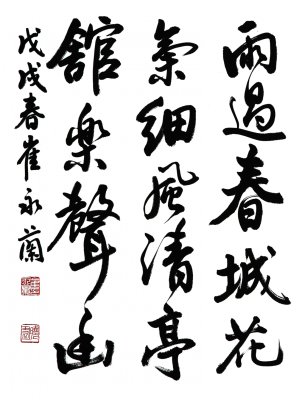 雨過春城花
氣細風清亭
館樂聲幽
戊戌春崔永蘭